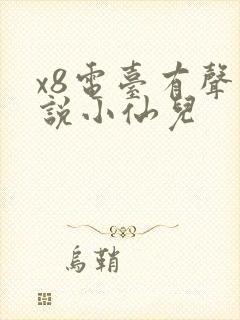 x8電臺有聲
說小仙兒
烏鞘